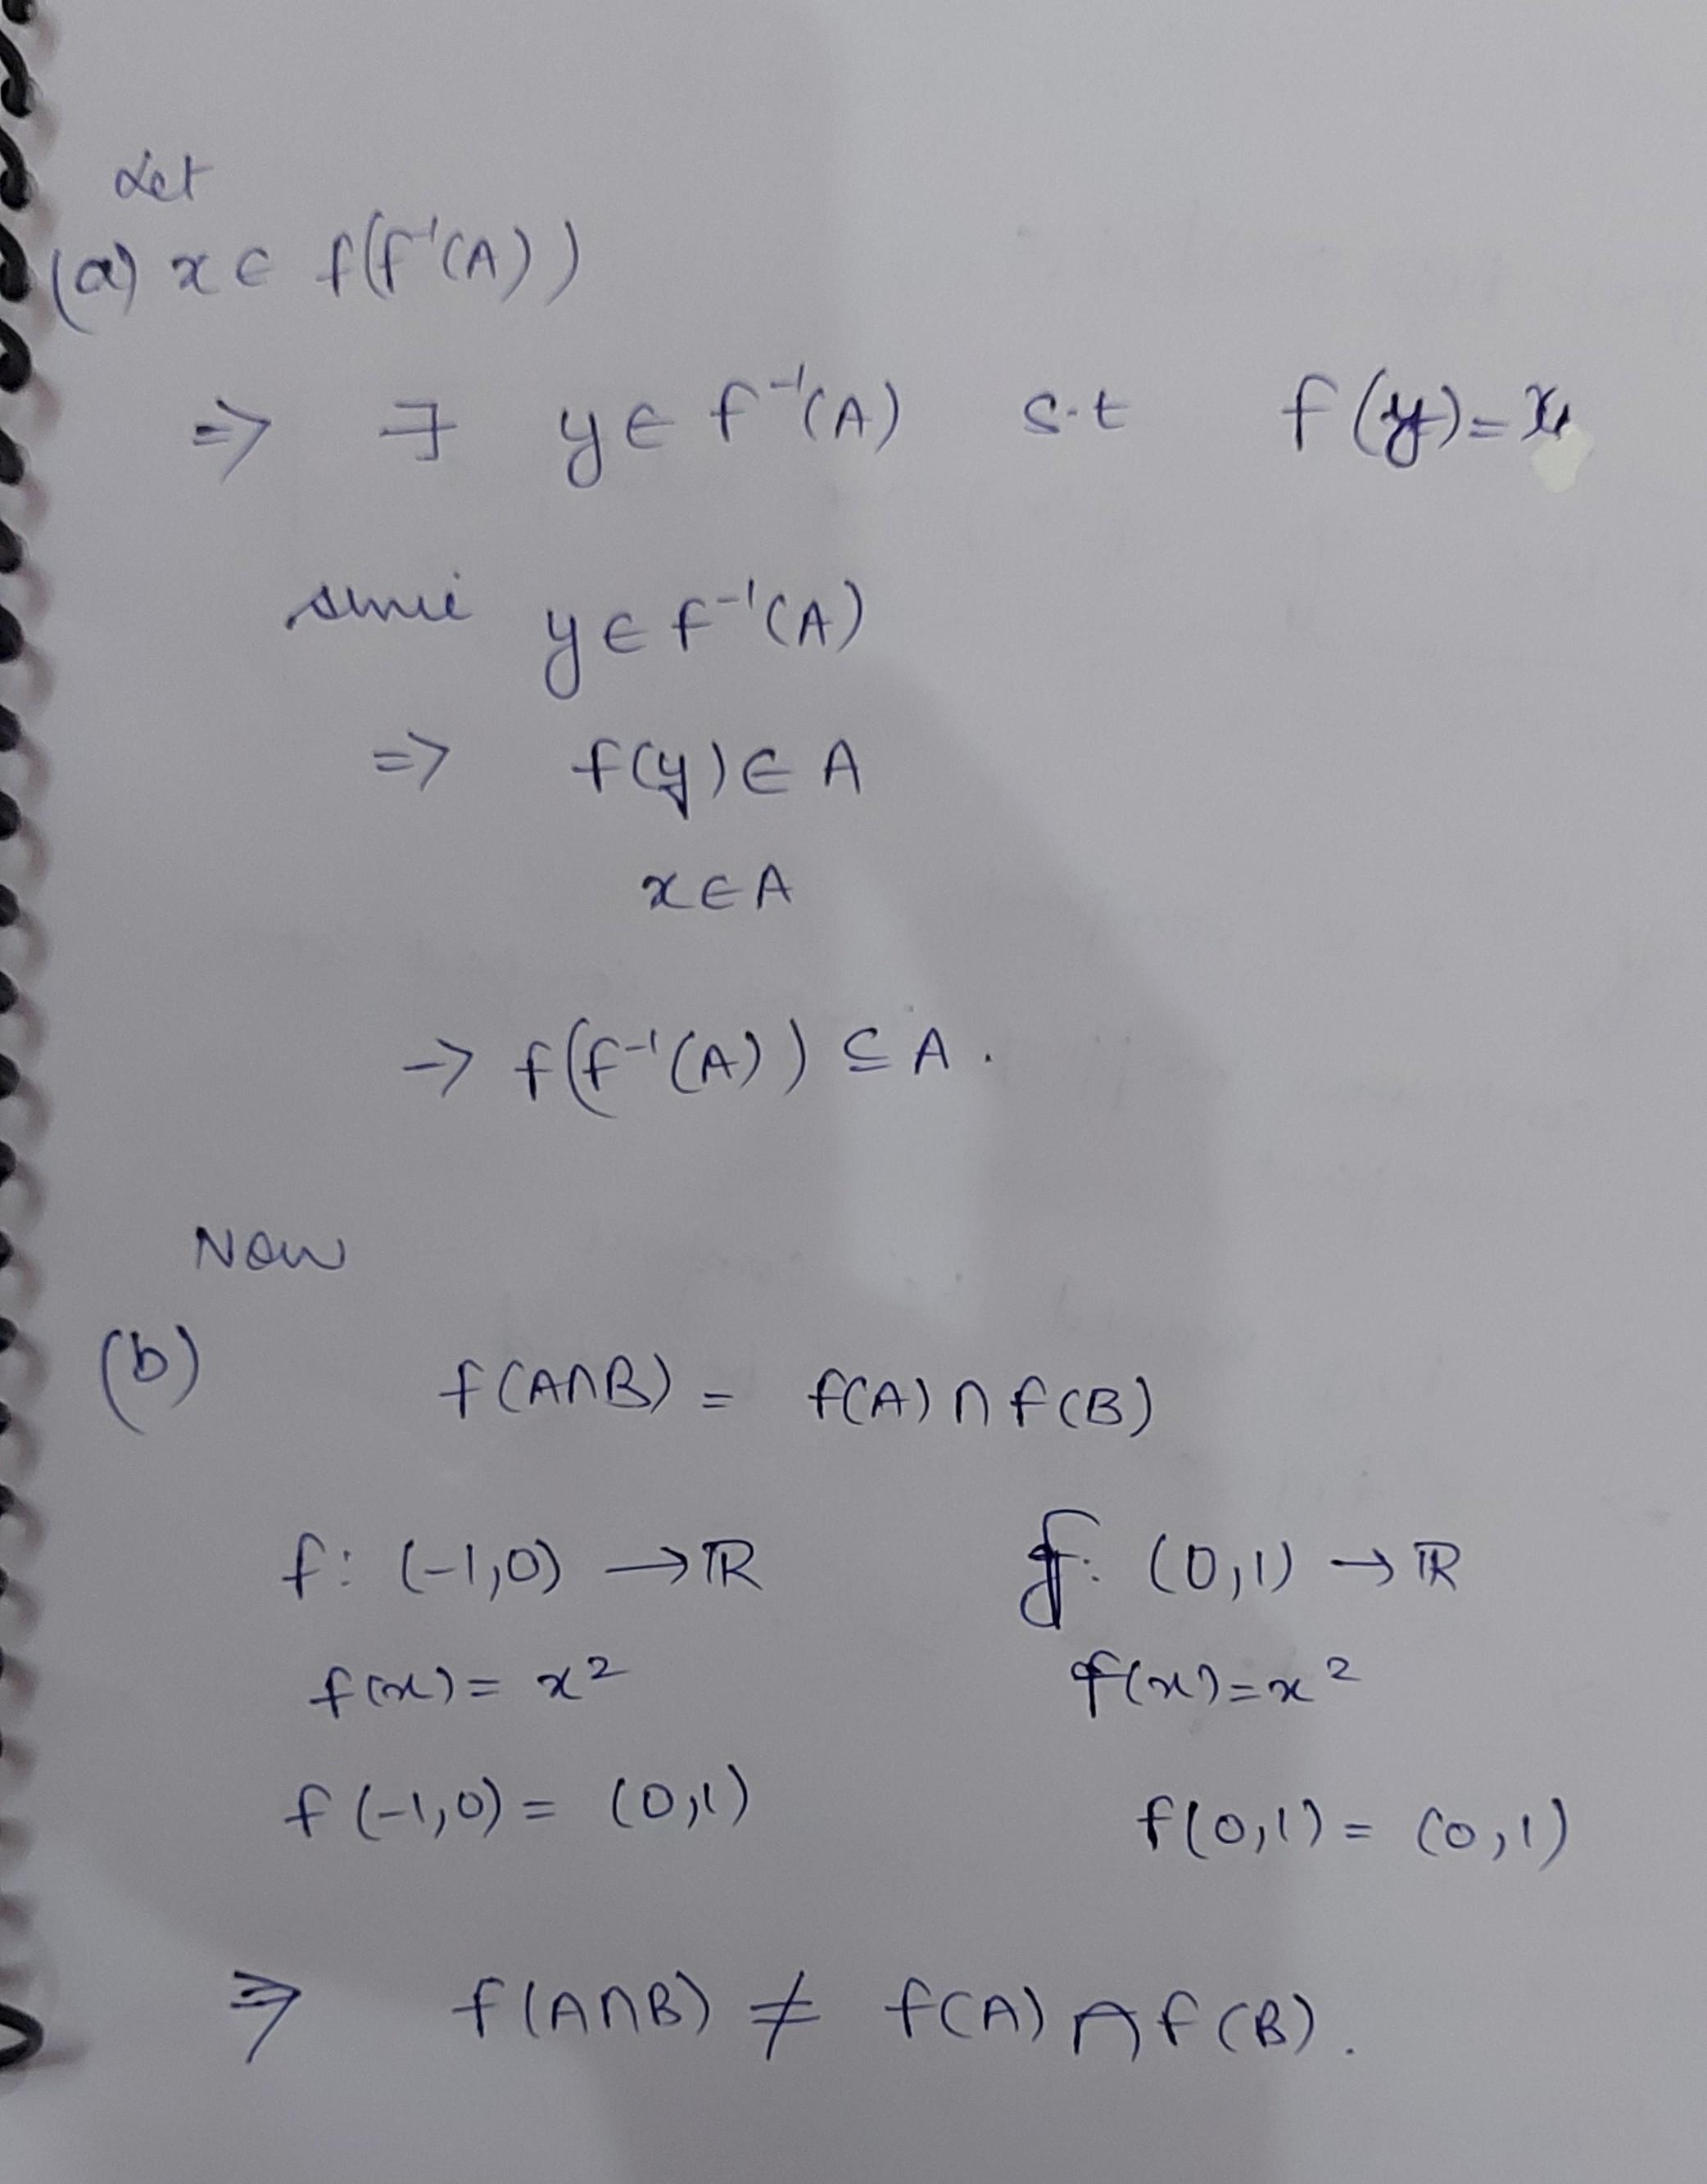 Let
(a) x ∈ f(f⁻¹(A))
⇒ ∃ y ∈ f⁻¹(A) s.t f(y) = x
since y ∈ f⁻¹(A)
⇒ f(y) ∈ A
x ∈ A
→ f(f⁻¹(A)) ⊆ A.
Now
(b) f(A∩B) = f(A) ∩ f(B)
f: (-1,0) → ℝ f: (0,1) → ℝ
f(x) = x² f(x) = x²
f(-1,0) = (0,1) f(0,1) = (0,1)
⇒ f(A∩B) ≠ f(A) ∩ f(B).